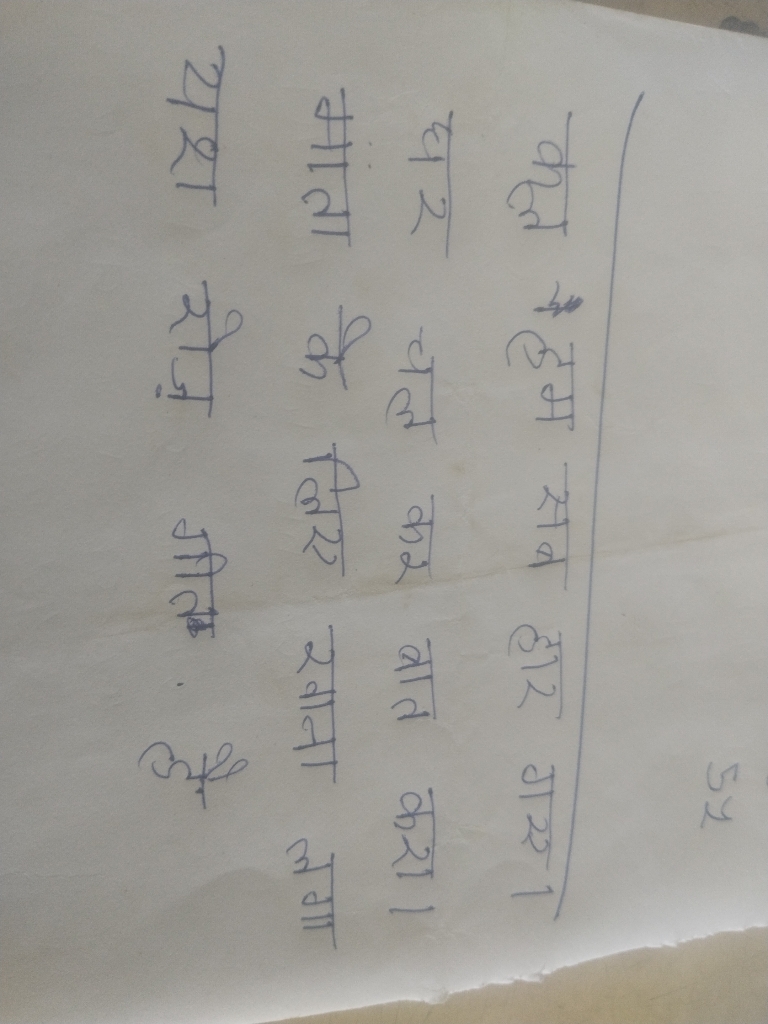 52
कल हम सब हार गए।
घर चल कर बात करा।
माता के लिए खाना लगा
यश रोज़ गीत है